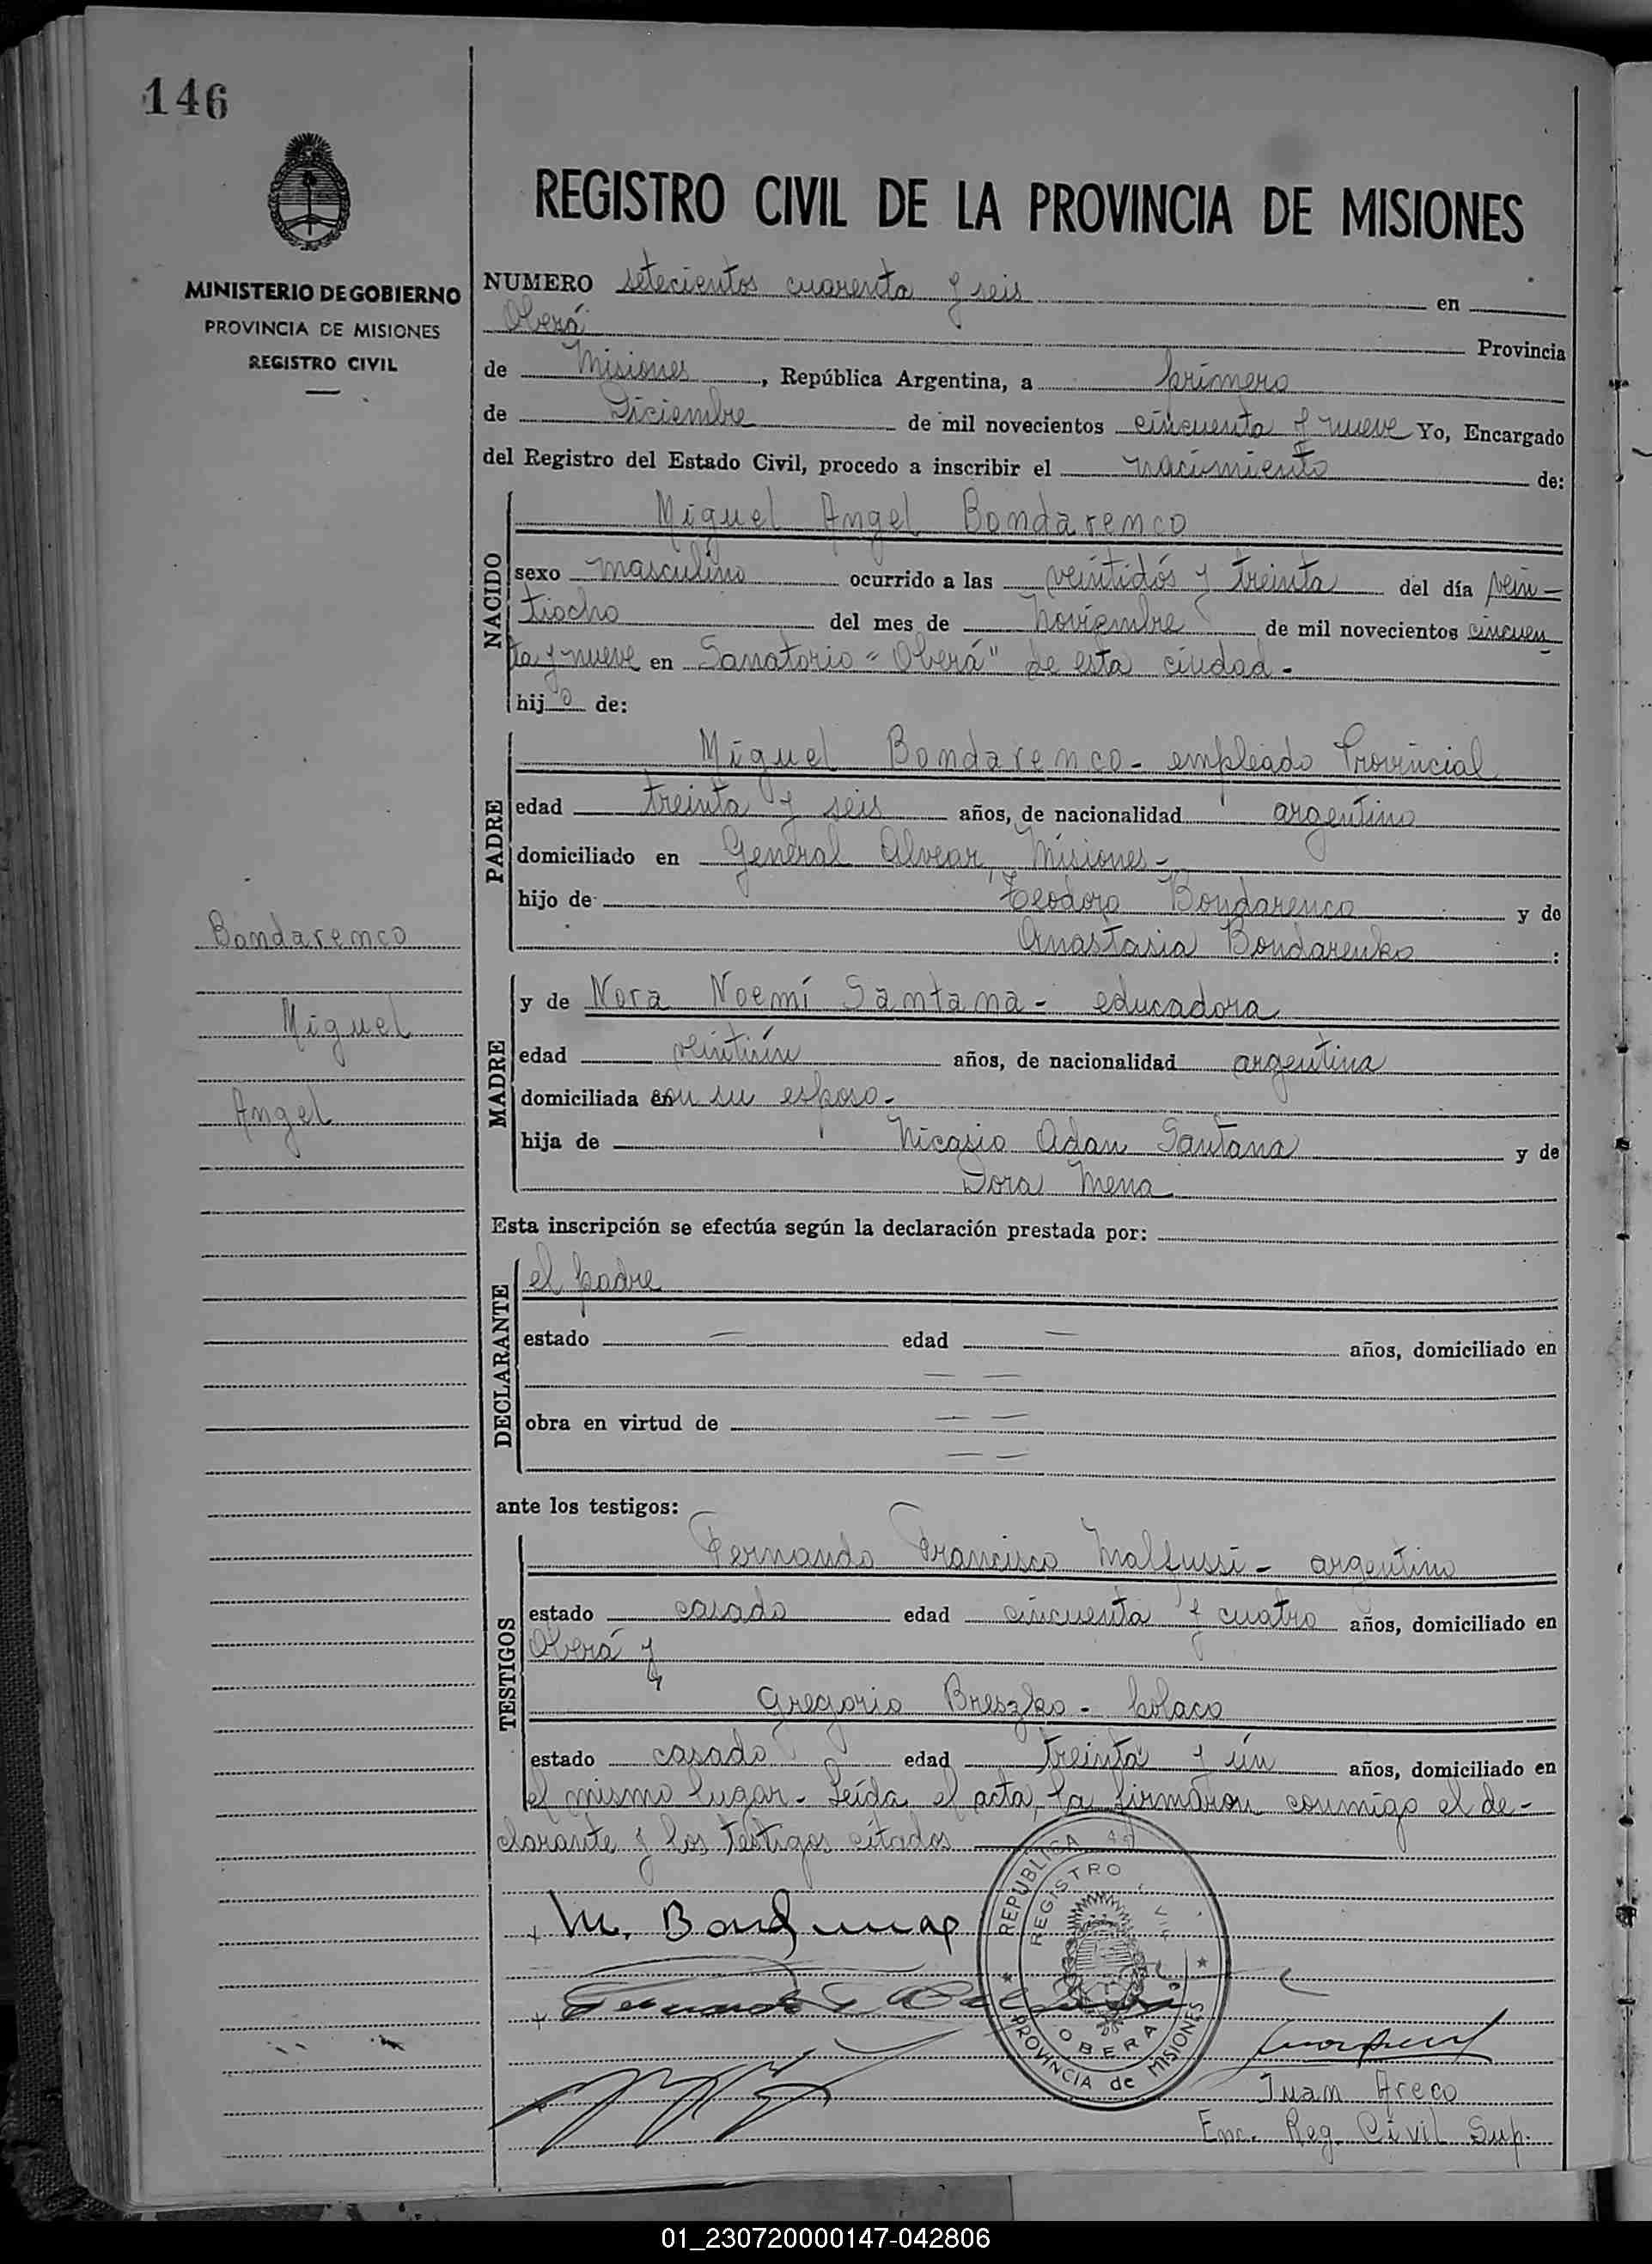 146
MINISTERIO DE GOBIERNO
PROVINCIA DE MISIONES
REGISTRO CIVIL
Bondarenco
Miguel
Angel
REGISTRO CIVIL DE LA PROVINCIA DE MISIONES
NUMERO setecientos cuarenta y seis en
Oberá Provincia
de Misiones, República Argentina, a primero
de Diciembre de mil novecientos cincuenta y nueve Yo, Encargado
del Registro del Estado Civil, procedo a inscribir el nacimiento de:
NACIDO
Miguel Angel Bondarenco
sexo masculino ocurrido a las veintidós y treinta del día vein-
tiocho del mes de Noviembre de mil novecientos cincuen
ta y nueve en Sanatorio "Oberá" de esta ciudad.-
hijo de:
PADRE
Miguel Bondarenco- empleado Provincial
edad treinta y seis años, de nacionalidad argentino
domiciliado en General Alvear, Misiones-
hijo de Teodoro Bondarenco y de
Anastasia Bondarenko :
MADRE
y de Nora Noemí Santana- educadora
edad veintiún años, de nacionalidad argentina
domiciliada con su esposo.-
hija de Nicasio Adan Santana y de
Dora Mena
Esta inscripción se efectúa según la declaración prestada por:
DECLARANTE
el padre
estado — edad — años, domiciliado en
— —
obra en virtud de — —
— —
ante los testigos:
TESTIGOS
Fernando Francisco Malfussi- argentino
estado casado edad cincuenta y cuatro años, domiciliado en
Oberá y
Gregorio Breszko- polaco
estado casado edad treinta y un años, domiciliado en
el mismo lugar.- Leída el acta, la firmaron conmigo el de-
clarante y los testigos citados
M. Bon
REPUBLICA
REGISTRO CIVIL
OBERA
PROVINCIA de MISIONES
Juan Areco
Enc. Reg. Civil Sup.
01_230720000147-042806